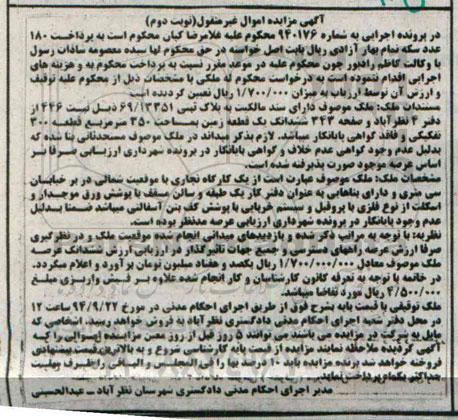 آگهی مزایده اموال غیر منقول(نوبت دوم)
در پرونده اجرایی به شماره ۹۴۰۱۷۶ محکوم علیه غلامرضا کیان محکوم است به پرداخت ۱۸۰
عدد سکه تمام بهار آزادی ریال بابت اصل خواسته در حق محکوم لها سیده معصومه سادات رسول
با وکالت کاظم زادپور چون محکوم علیه در موعد مقرر نسبت به پرداخت محکوم به و هزینه های
اجرایی اقدام ننموده است به درخواست محکوم له ملکی با مشخصات ذیل از محکوم علیه توقیف
و ارزش آن توسط ارزیاب به میزان ۱/۷۰۰/۰۰۰ ریال تعیین گردیده است
مستندات ملک: ملک موصوف دارای سند مالکیت به پلاک ثبتی ۶۹/۱۳۳۵۱ ذیل ثبت ۴۴۶ از
دفتر ۴ نظرآباد و صفحه ۳۴۳ ششدانگ یک قطعه زمین بمساحت ۳۵۰ مترمربع قطعه ۳۰۰
تفکیکی و فاقد گواهی پایانکار میباشد. لازم بذکر میداند در ملک موصوف مستحدثاتی بنا شده که
بدلیل عدم وجود گواهی عدم خلاف و گواهی پایانکار در پرونده شهرداری ارزیابی صرفا بر
اساس عرصه موجود صورت پذیرفته شده است.
مشخصات ملک: ملک موصوف عبارت است از یک کارگاه تجاری با موقعیت شمالی در بر خیابان
سی متری و دارای بناهایی به عنوان دفتر کار یک طبقه و سالن مسقف با پوشش ورق موجدار و
اسکلت از نوع فلزی با پروفیل و سیستم خرپایی با پوشش کف بتن آسفالتی میباشد ضمنا بدلیل
عدم وجود پایانکار در پرونده شهرداری ارزیابی عرصه مدنظر بوده است
نظریه: با توجه به مراتب ذکر شده و بازدیدهای میدانی انجام شده موقعیت ملک و در نظرگیری
صرفا ارزش عرصه راههای دسترسی و جمیع جهات تاثیرگذار در ارزیابی ارزش ششدانگ عرصه
ملک موصوف معادل ۱/۷۰۰/۰۰۰/۰۰۰ ریال یکصد و هفتاد میلیون تومان برآورد و اعلام میگردد.
در خاتمه با توجه به تعرفه کانون کارشناسان و کار انجام شده علاوه بر فیش واریزی مبلغ
۴/۵۰۰/۰۰۰ ریال مورد تقاضا میباشد.
ملک توقیفی با قیمت پایه بشرح فوق از طریق اجرای احکام مدنی در مورخ ۹۴/۹/۲۲ ساعت ۱۲
در محل دفتر شعبه اجرای احکام مدنی دادگستری نظرآباد به فروش خواهد رسید. اشخاصی که
مایل به شرکت در مزایده می باشند می توانند ۵ روز قبل از روز معین مزایده اموالی را که
آگهی گردیده ملاحظه نمایند مزایده از قیمت پایه کارشناسی شروع و به بالاترین قیمت پیشنهادی
فروخته خواهد شد برنده مزایده باید ۱۰ درصد بها را فی المجلس و الباقی را ظرف مهلت
حداکثر یکماه پرداخت نماید.
مدیر اجرای احکام مدنی دادگستری شهرستان نظرآباد ــ عبدالحسینی